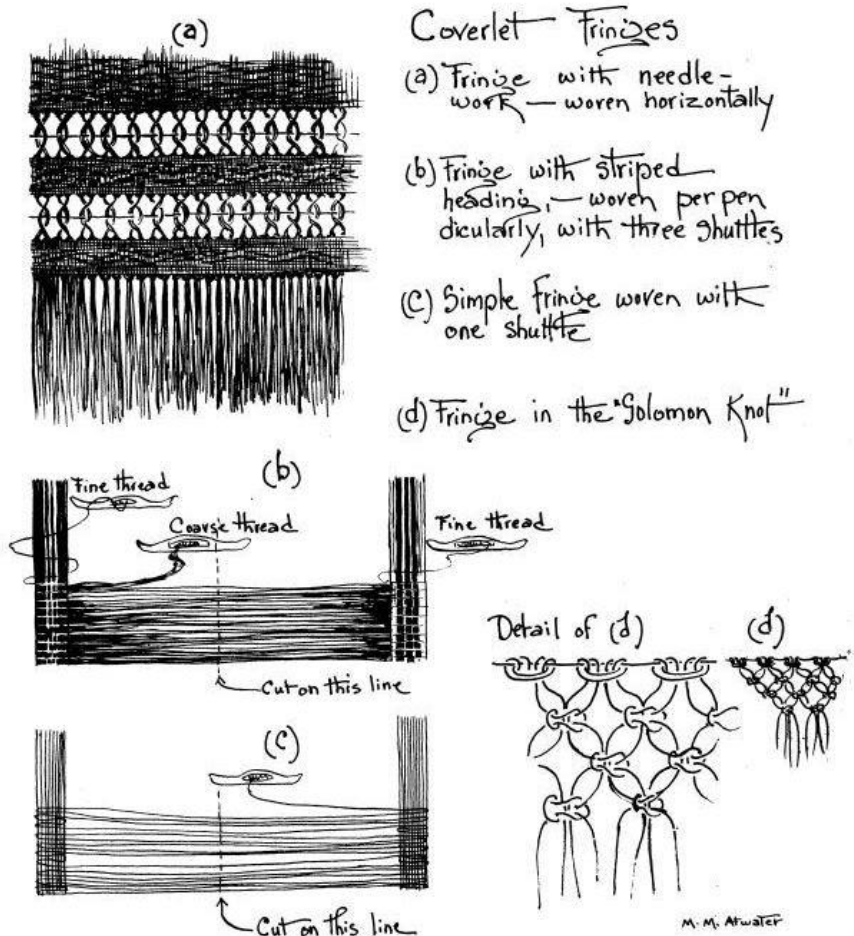 (a)
Coverlet Fringes
(a) Fringe with needle-
work — woven horizontally
(b) Fringe with striped
heading, — woven perpen
dicularly, with three shuttles
(c) Simple fringe woven with
one shuttle
(d) Fringe in the "Solomon Knot"
(b)
Fine thread
Coarse thread
Fine thread
Cut on this line
Detail of (d)
(d)
(c)
Cut on this line
M. M. Atwater